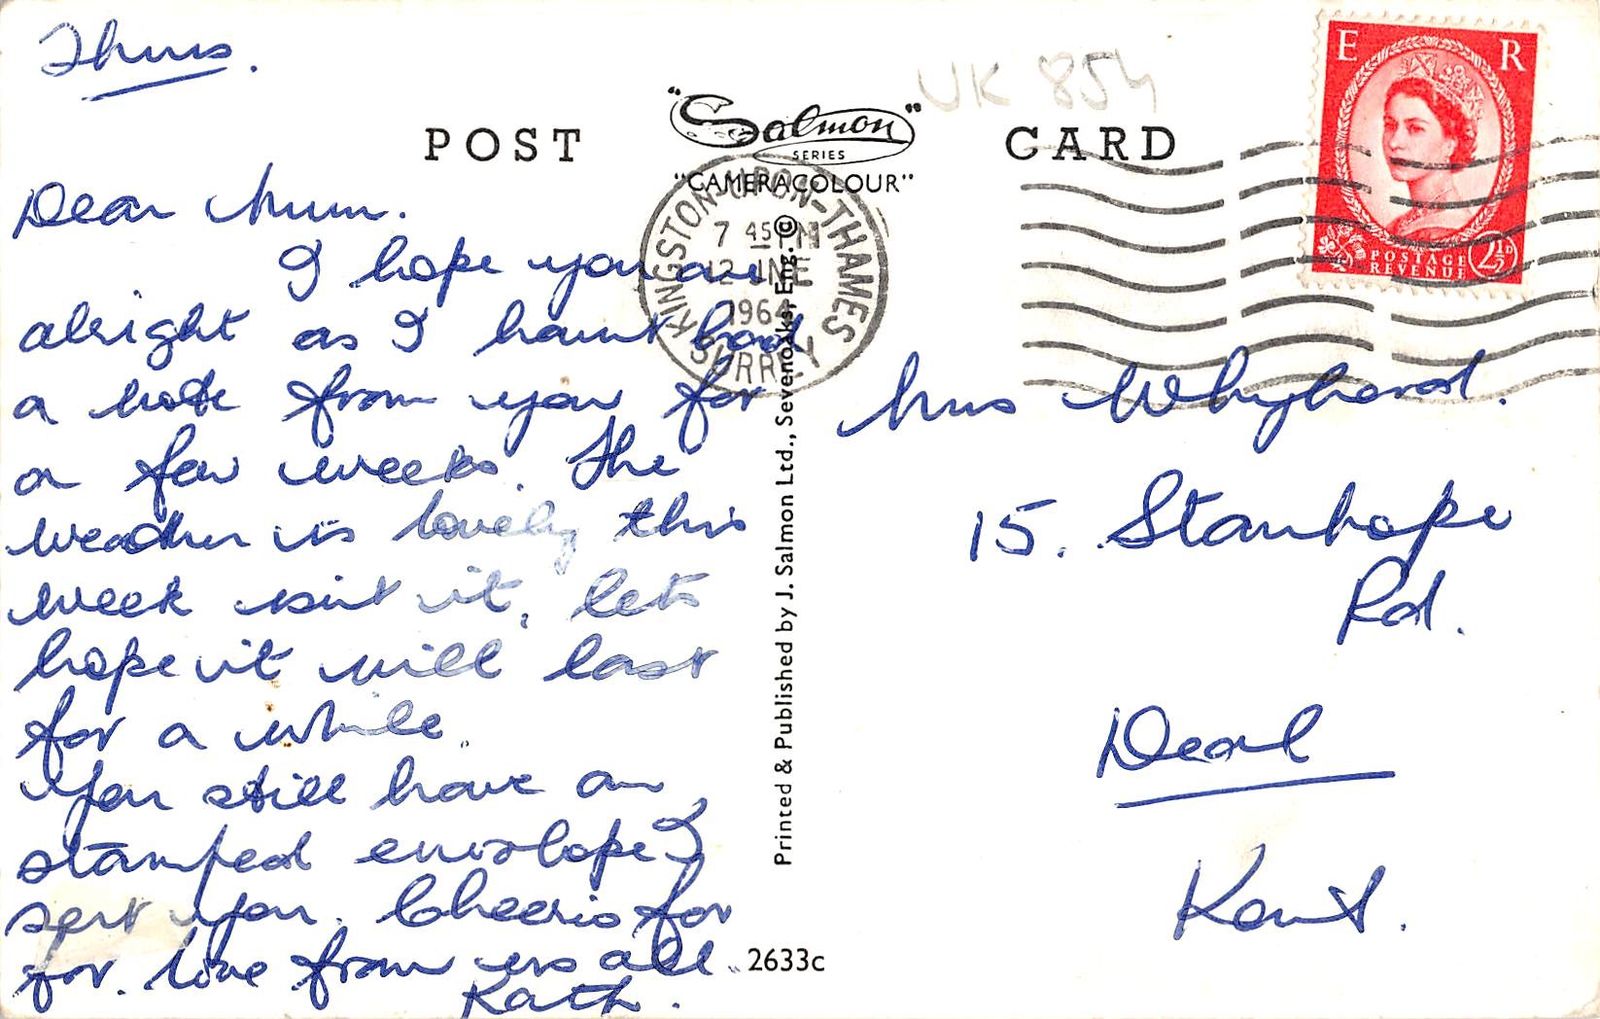 Thurs.
UK 854
POST CARD
"Salmon"
SERIES
"CAMERACOLOUR"
E R
POSTAGE
REVENUE
2½D
KINGSTON-UPON-THAMES
7 45 PM
12 JNE
1964
SURREY
Dear Mum.
I hope you are
alright as I havnt had
a note from you for
a few weeks. The
weather is lovely this
week isnt it, lets
hope it will last
for a while.
You still have an
stamped envelope I
sent you. Cheerio for
for. love from us all.
Kath.
Printed & Published by J. Salmon Ltd., Sevenoaks, Eng. ©
2633c
Mrs Whyhard.
15. Stanhope
Rd.
Deal
Kent.